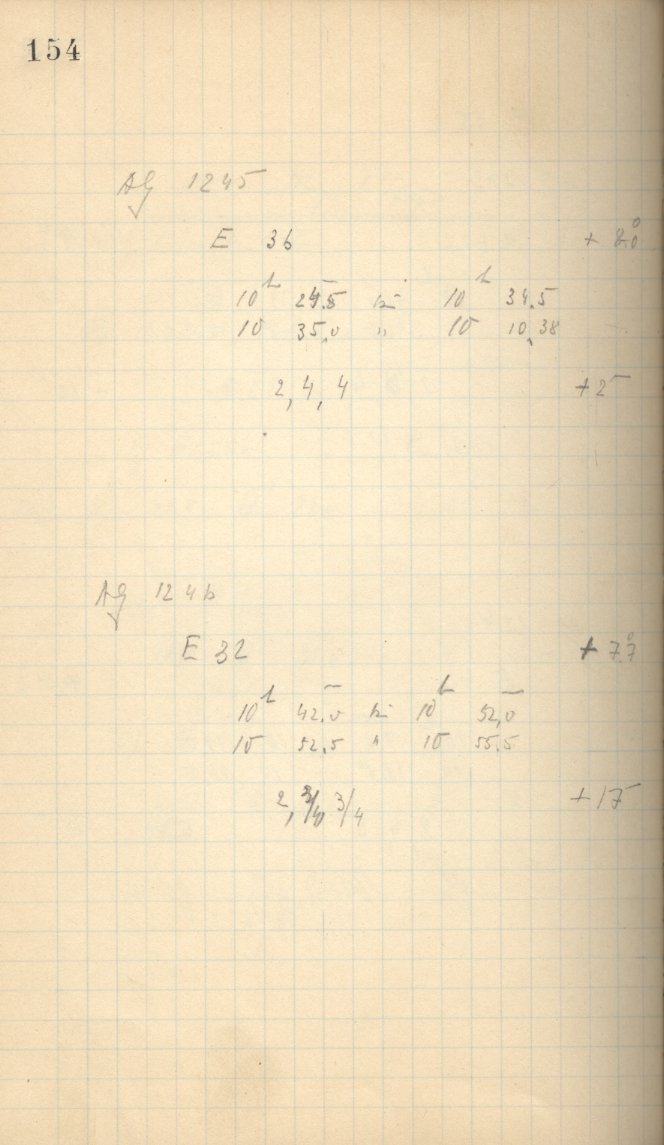 154
AG 1245
E 36 + 8.0°
10h 24.5 bis 10h 34.5
10 35,0 " 10 10,38
2, 4, 4 +25
AG 1246
E 32 + 7.7°
10h 42,0 bis 10h 52,0
10 52,5 " 10 55.5
2, 3/4, 3/4 +17